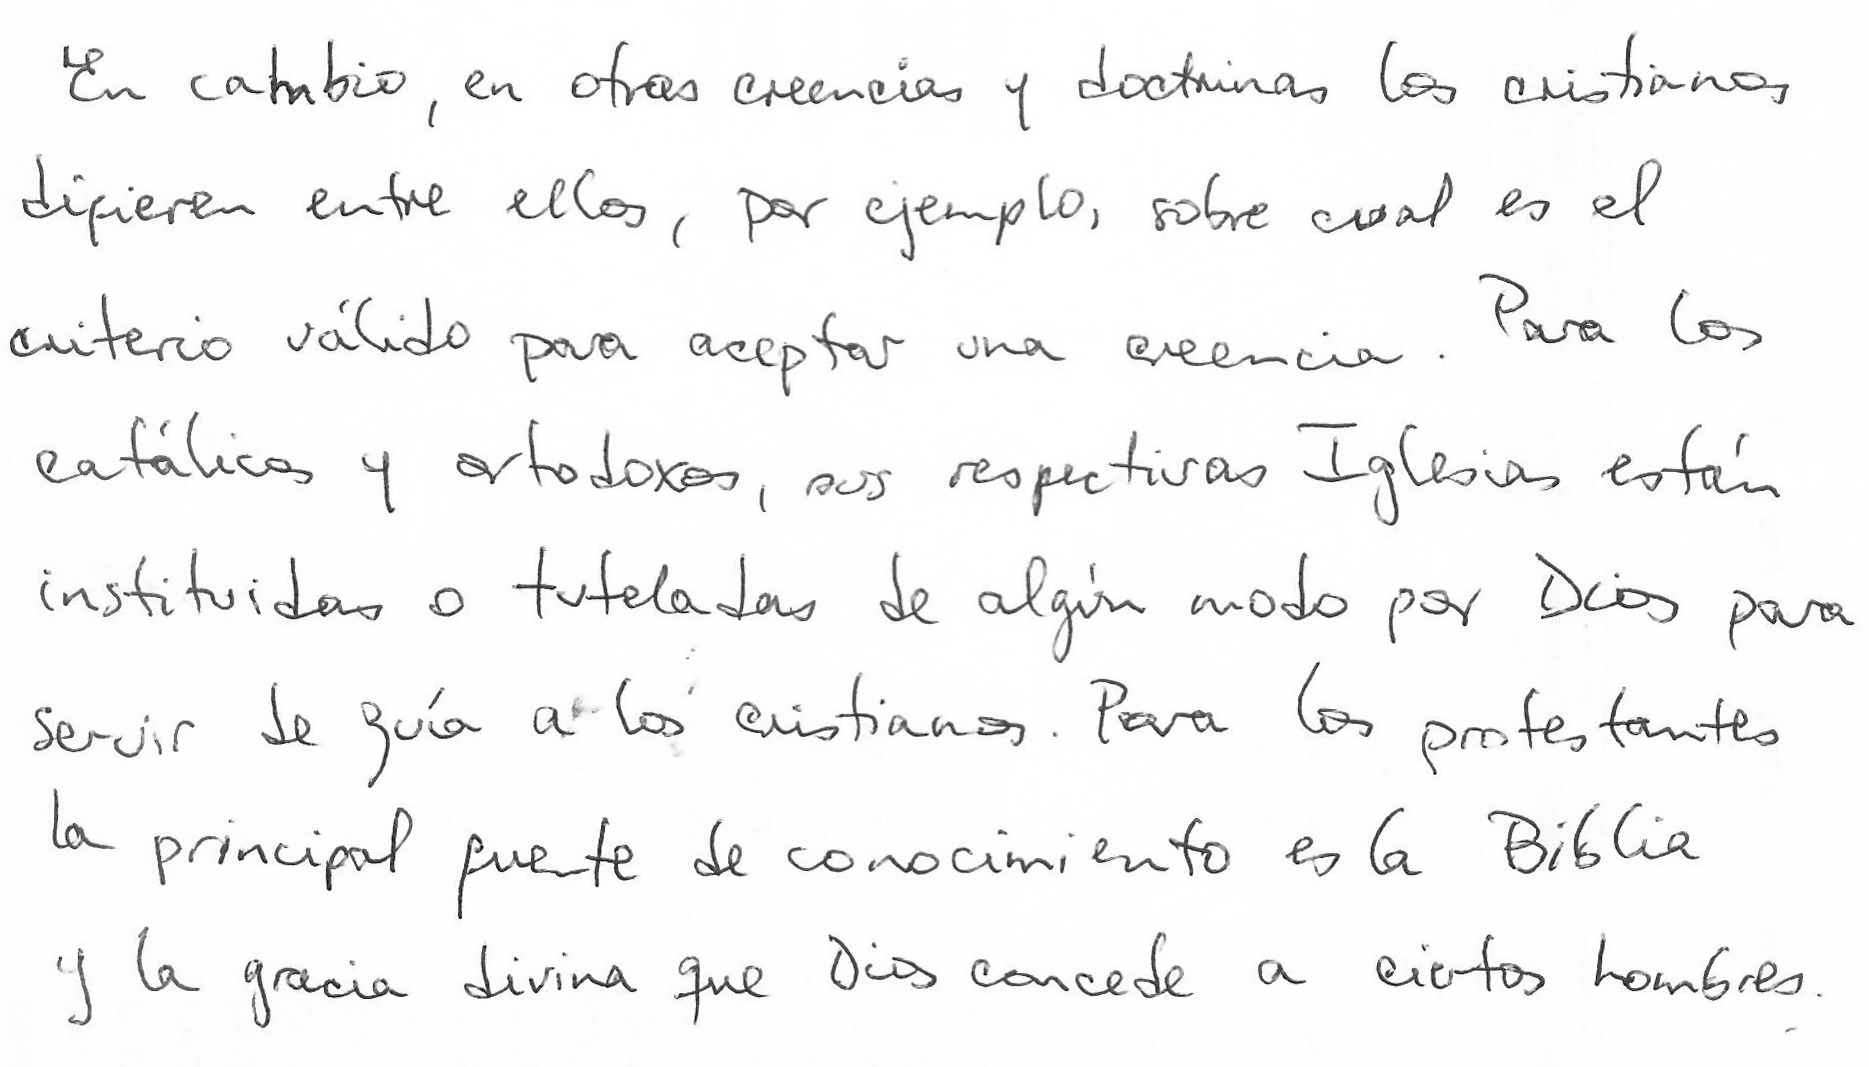 En cambio, en otras creencias y doctrinas los cristianos
difieren entre ellos, por ejemplo, sobre cual es el
criterio válido para aceptar una creencia. Para los
católicos y ortodoxos, sus respectivas Iglesias están
instituidas o tuteladas de algún modo por Dios para
servir de guía a los cristianos. Para los protestantes
la principal fuente de conocimiento es la Biblia
y la gracia divina que Dios concede a ciertos hombres.